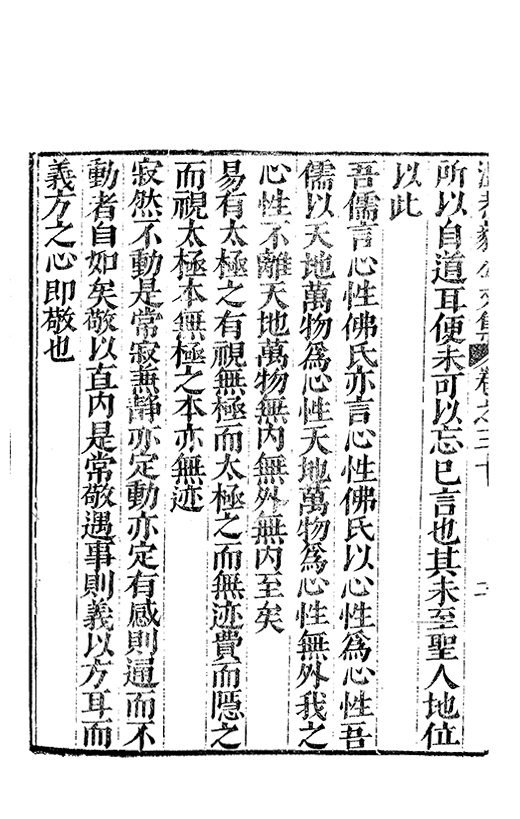 溫恭毅公文集 卷之三十 二
所以自道耳便未可以忘巳言也其未至聖人地位
以此
吾儒言心性佛氏亦言心性佛氏以心性爲心性吾
儒以天地萬物爲心性天地萬物爲心性無外我之
心性不離天地萬物無內無外無內至矣
易有太極之有視無極而太極之而無迹費而隱之
而視太極本無極之本亦無迹
寂然不動是常寂兼靜亦定動亦定有感則通而不
動者自如矣敬以直內是常敬遇事則義以方耳而
義方之心即敬也